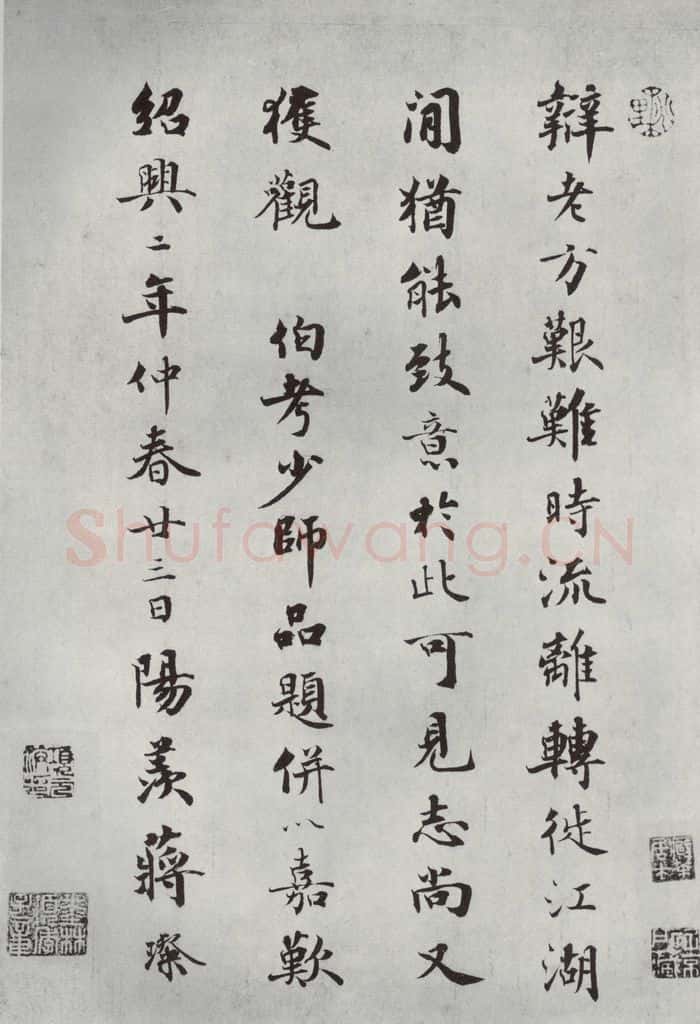 辯老方艱難時流離轉徙江湖
間猶能致意於此可見志尚又
獲觀 伯考少師品題併以嘉歎
紹興二年仲春廿三日陽羨蔣璨
Shufawang.CN